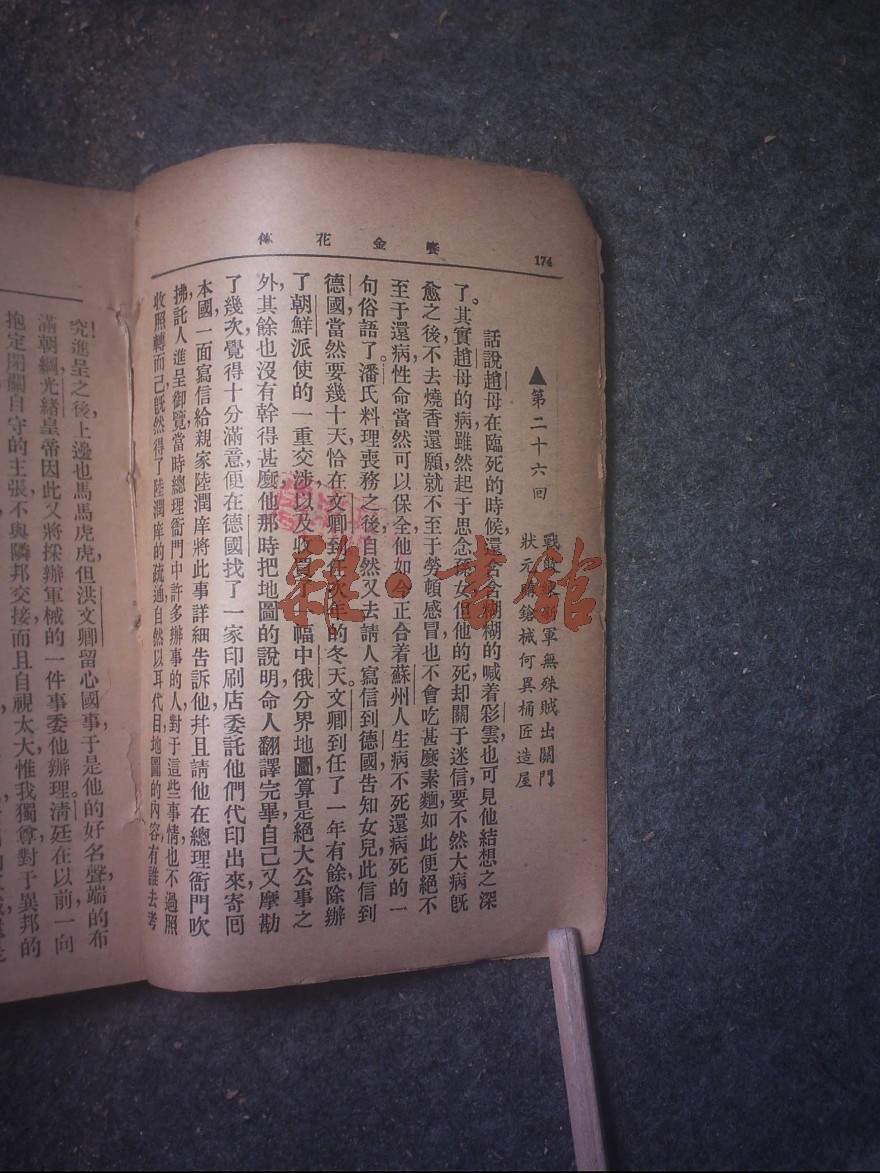 174
賽金花傳
▲第二十六回
戰敗 新軍無殊賊出關門
狀元購鎗械何異桶匠造屋
話說趙母在臨死的時候還含含糊糊的喊着彩雲也可見他結想之深
了。其實趙母的病雖然起于思念孫女但他的死却關于迷信要不然大病既
愈之後,不去燒香還願就不至于勞頓感冒也不會吃甚麼素麵如此便絕不
至于還病,性命當然可以保全他如今正合着蘇州人生病不死還病死的一
句俗語了。潘氏料理喪務之後,自然又去請人寫信到德國告知女兒此信到
德國當然要幾十天恰在文卿到任次年的冬天。文卿到任了一年有餘除辦
了朝鮮派使的一重交涉,以及收買了一幅中俄分界地圖算是絕大公事之
外,其餘也沒有幹得甚麼他那時把地圖的說明命人翻譯完畢自己又摩勘
了幾次覺得十分滿意,便在德國找了一家印刷店委託他們代印出來,寄回
本國,一面寫信給親家陸潤庠將此事詳細告訴他,幷且請他在總理衙門吹
拂,託人進呈御覽,當時總理衙門中許多辦事的人,對于這些事情也不過照
收照轉而已既然得了陸潤庠的疏通,自然以耳代目,地圖的內容,有誰去考
究,進呈之後,上邊也馬馬虎虎,但洪文卿留心國事,于是他的好名聲端的布
滿朝綱,光緒皇帝因此又將採辦軍械的一件事委他辦理。清廷在以前一向
抱定閉關自守的主張,不與隣邦交接,而且自視太大,惟我獨尊,對于異邦的
雜·書館